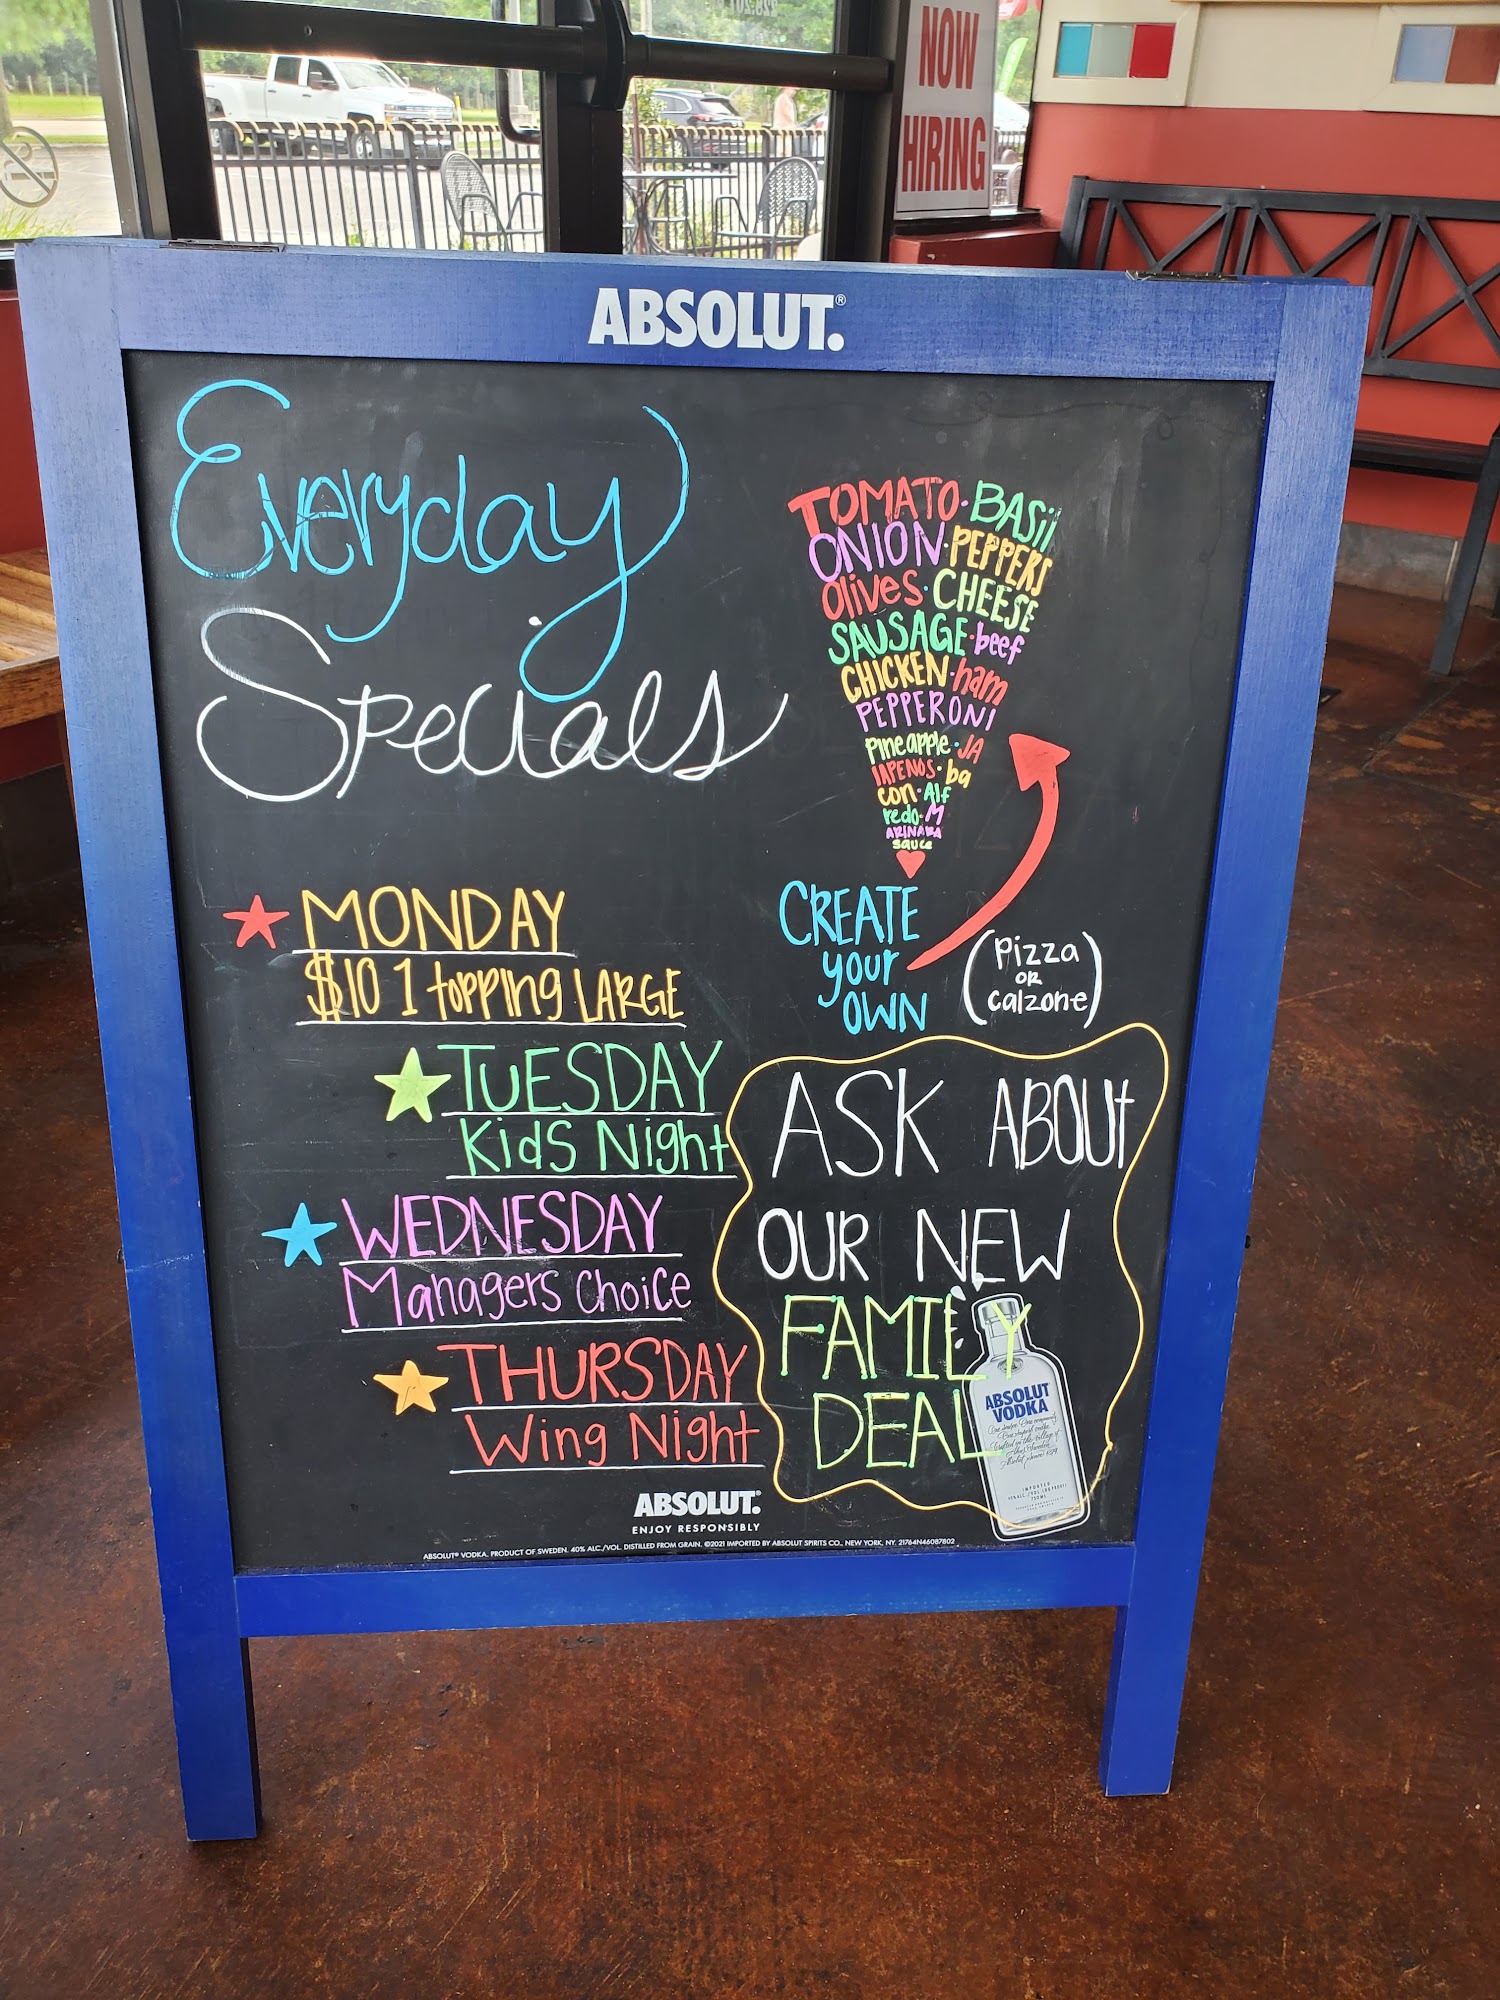 NOW
HIRING
ABSOLUT.®
Everyday
Specials
TOMATO·BASil
ONION·PEPPERS
Olives·CHEESE
SAUSAGE·beef
CHICKEN·ham
PEPPERONI
Pineapple·JA
lAPENOS·ba
con·Alf
redo·M
ARINARA
sauce
CREATE
your
OWN
(Pizza
OR
calzone)
MONDAY
$10 1 topping LARGE
TUESDAY
Kids Night
WEDNESDAY
Managers Choice
THURSDAY
Wing Night
ASK ABOUt
OUR NEW
FAMILY
DEAL
ABSOLUT
VODKA
IMPORTED
750ML
ABSOLUT.
ENJOY RESPONSIBLY
ABSOLUT® VODKA. PRODUCT OF SWEDEN. 40% ALC./VOL. DISTILLED FROM GRAIN. ©2021 IMPORTED BY ABSOLUT SPIRITS CO., NEW YORK, NY. 21764N46087802